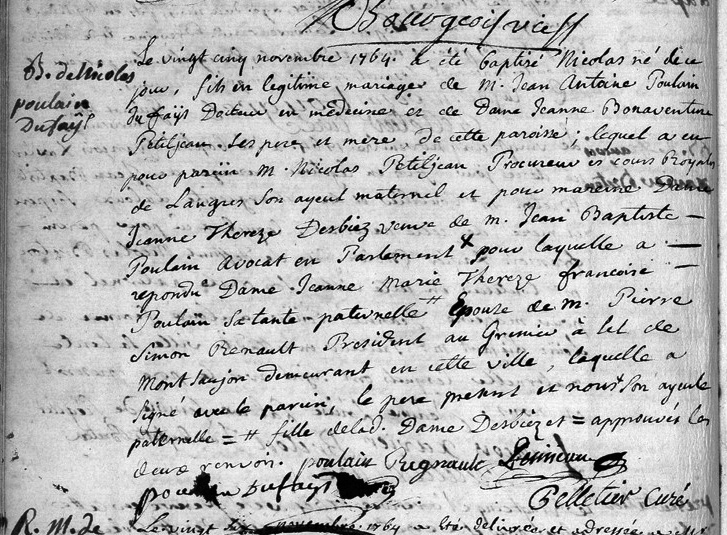 Bourgeois vic
B. de Nicolas
poulain
Dufaÿs
Le vingt cinq novembre 1764. a été baptisé Nicolas né de ce
jour, fils en legitime mariage de M. Jean Antoine Poulain
du faÿs Docteur en medecine et de Dame Jeanne Bonaventure
Petitjean. Ses pere et mere de cette paroisse; lequel a eu
pour parein M. Nicolas Petitjean Procureur es cours Royales
de Langres Son ayeul maternel et pour mareine Dame
Jeanne Thereze Desbiez veuve de M. Jean Baptiste
Poulain avocat en Parlement × pour laquelle a
repondu Dame Jeanne Marie Thereze francoise
Poulain Sa tante paternelle # Epouze de M. Pierre
Simon Renault President au Grenier à sel de
Montsaujon demeurant en cette ville, laquelle a
signé avec le parein, le pere present et nous × Son ayeule
paternelle = # fille de lad. Dame Desbiez et = approuvés les
deux renvois. poulain Regnault
poulain Dufaÿs
Pelletier Curé
R. M. de
Le vingt six novembre 1764 a été delivrée et adressée a